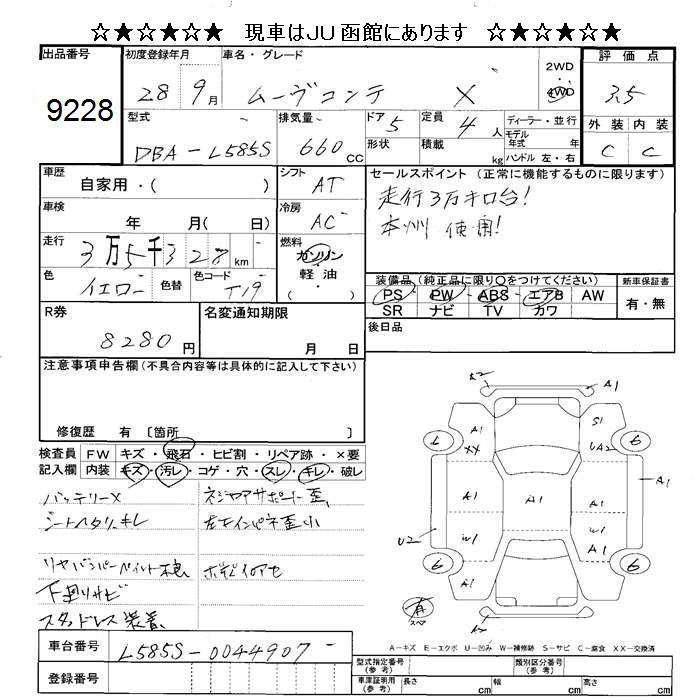 ☆★☆★☆★ 現車はJU函館にあります ☆★☆★☆★
出品番号 初度登録年月 車名・グレード 評価点
9228 28 9月 ムーヴコンテ X 2WD 4WD 3.5
型式 排気量 ドア 5 定員 4人 ディーラー・並行 外装 内装
DBA-L585S 660cc 形状 積載 kg モデル年式 年 C C
ハンドル 左・右
車歴 シフト セールスポイント(正常に機能するものに限ります)
自家用・( ) AT 走行3万キロ台!
車検 冷房 本州 使用!
年 月( 日) AC
走行 燃料
3万5千328km ガソリン・軽油・( )
色 色替 色コード 装備品(純正品に限り○をつけてください) 新車保証書
イエロー T19 PS PW ABS エアB AW 有・無
SR ナビ TV カワ
R券 名変通知期限 後日品
8280円 月 日
注意事項申告欄(不具合内容等は具体的に記入して下さい)
修復歴 有 〔箇所 〕
検査員 FW キズ・飛石・ヒビ割・リペア跡・×要
記入欄 内装 キズ・汚レ・コゲ・穴・スレ・キレ・破レ
バッテリーX
シートヘタリ、キレ 左右インパネ歪小
リヤバンパーペイント不良
下廻りサビ
スタッドレス装着
A2 A1
A1 S1
6 XX UA2 6
A1 A1 A1 A1
U2 W1 W1
A1
6 A1 6
有
スペア
A-キズ E-エクボ U-凹み W-補修跡 S-サビ C-腐食 XX-交換済
車台番号 L585S-0044907
登録番号
型式指定番号(参考) 類別区分番号(参考)
車庫証明用(参考) 長さ cm 幅 cm 高さ cm